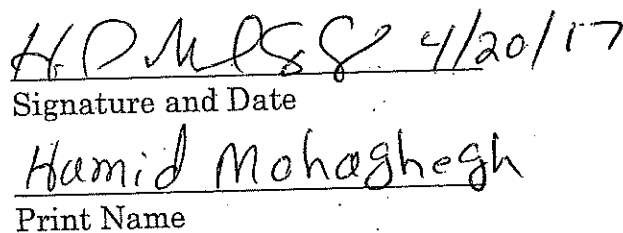 4/20/17
Signature and Date
Hamid Mohaghegh
Print Name